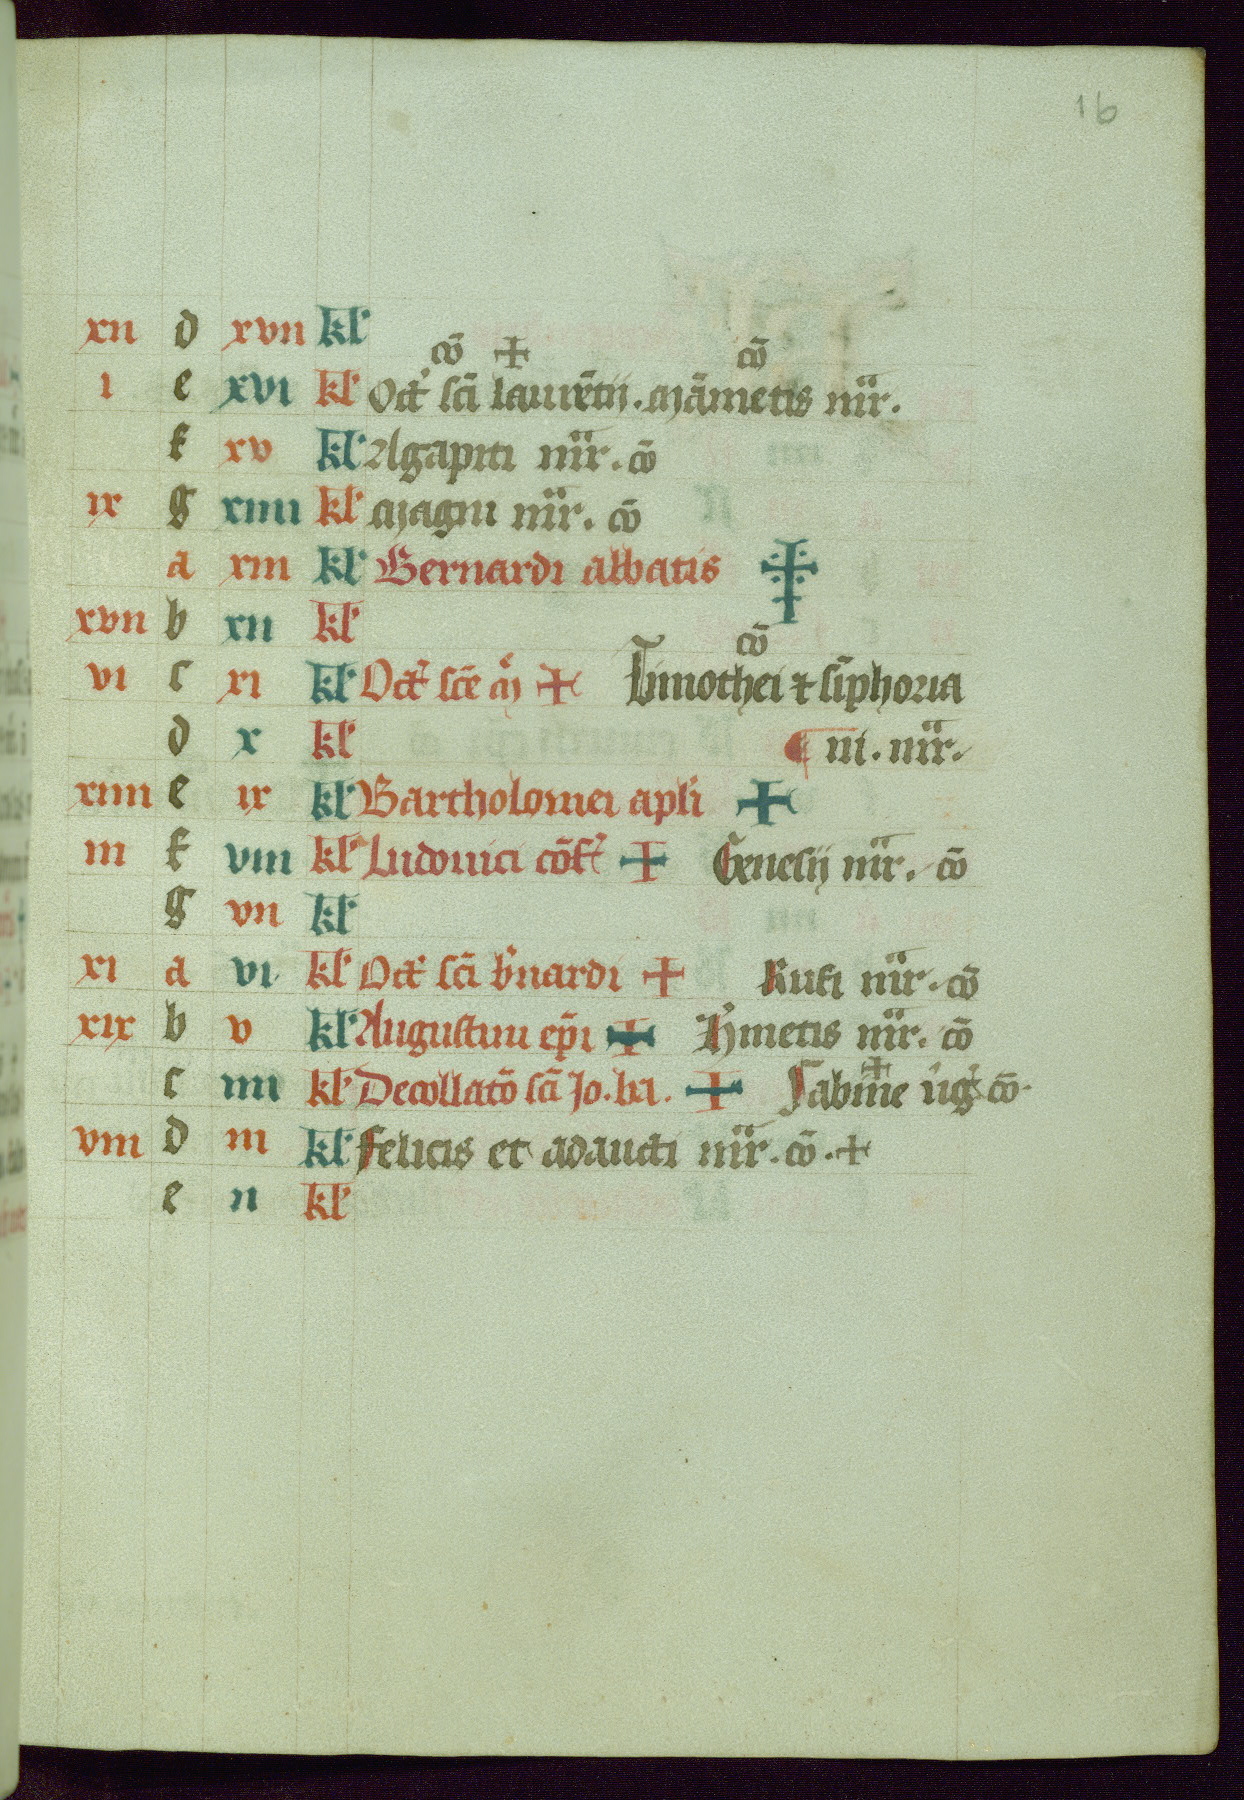 16
xii d xvii kl'
cō + cō
i e xvi kl' Oct' sc̄i laurētii. Māmetis mr̄.
f xv kl' Agapiti mr̄. cō
ix g xiiii kl' Magni mr̄. cō
a xiii kl' Bernardi abbatis
xvii b xii kl'
cō
vi c xi kl' Oct' sc̄e M + Timothei ⁊ sīphoria
d x kl' ¶ ni. mr̄.
xiiii e ix kl' Bartholomei apl'i +
iii f viii kl' Ludovici cōf' + Genesii mr̄. cō
g vii kl'
xi a vi kl' Oct' sc̄i b'nardi + Rufi mr̄. cō
xix b v kl' Augustini ep̄i + H'metis mr̄. cō
c iiii kl' Decollatō sc̄i Jo. ba. + Sabine v'g' cō. +
viii d iii kl' felicis et adaucti mr̄. cō. +
e ii kl'